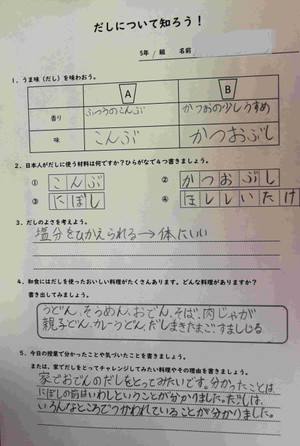 だしについて知ろう！
5年 / 組 名前
1、うま味（だし）を味わおう。
A B
香り ふつうのこんぶ かつおの少しうすめ
味 こんぶ かつおぶし
2、日本人がだしに使う材料は何ですか？ひらがなで４つ書きましょう。
① こんぶ ② かつおぶし
③ にぼし ④ ほししいたけ
3、だしのよさを考えよう。
塩分をひかえられる→体にいい
4、和食にはだしを使ったおいしい料理がたくさんあります。どんな料理がありますか？
書き出してみましょう。
うどん、そうめん、おでん、そば、肉じゃが
親子どん、カレーうどん、だしまきたまご、すましじる
5、今日の授業で分かったことや気づいたことを書きましょう。
または、家でだしをとってチャレンジしてみたい料理やその理由を書きましょう。
家でおでんのだしをとってみたいです。分かったことは
にぼしの前はいわしということが分かりました。だしは、
いろんなところでつかわれていることが分かりました。